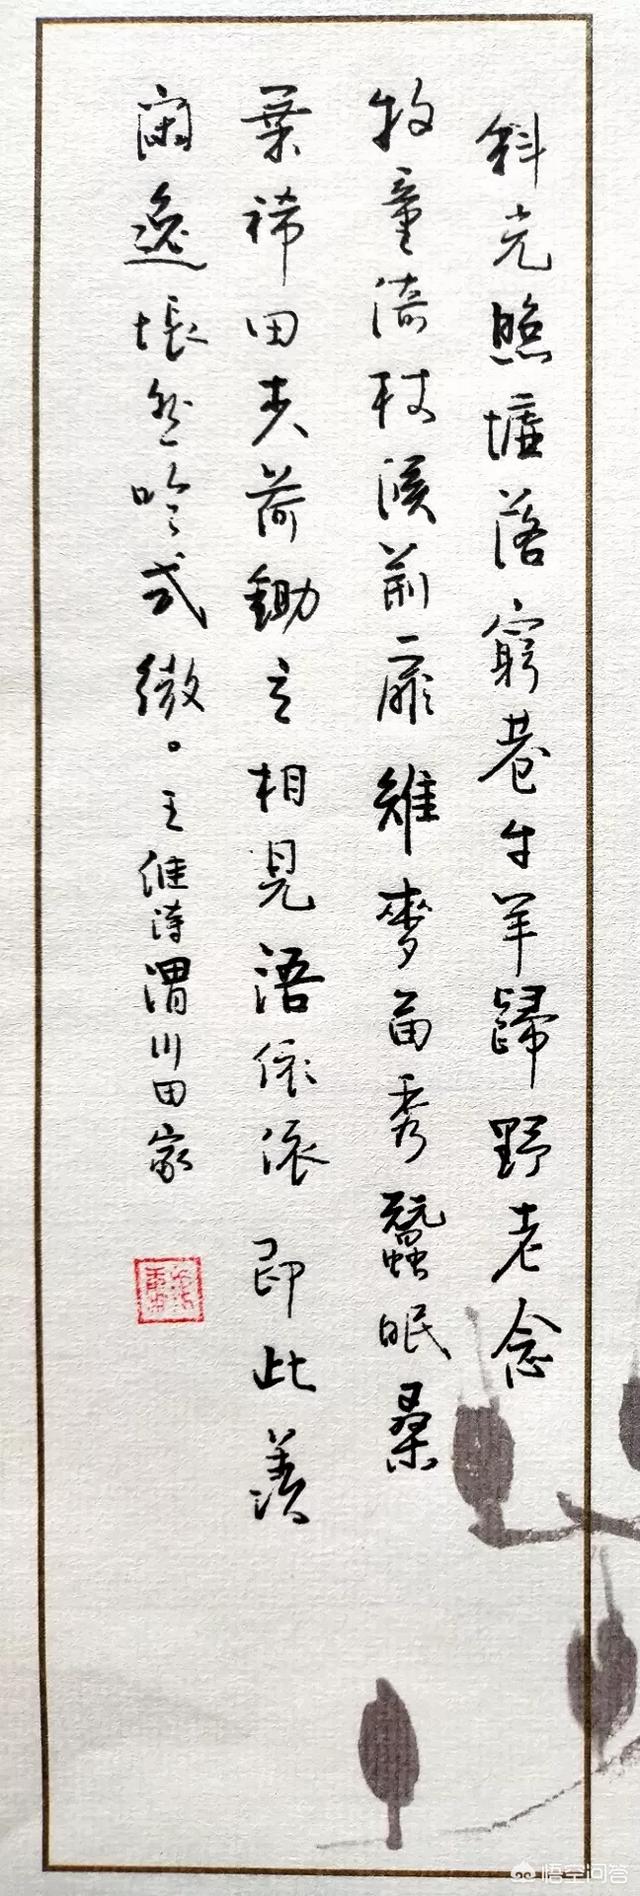 斜光照墟落窮巷牛羊歸野老念
牧童倚杖候荊扉雉麥苗秀蠶眠桑
葉稀田夫荷鋤立相見語依依即此羨
閑逸悵然吟式微。王維詩渭川田家
悟空问答